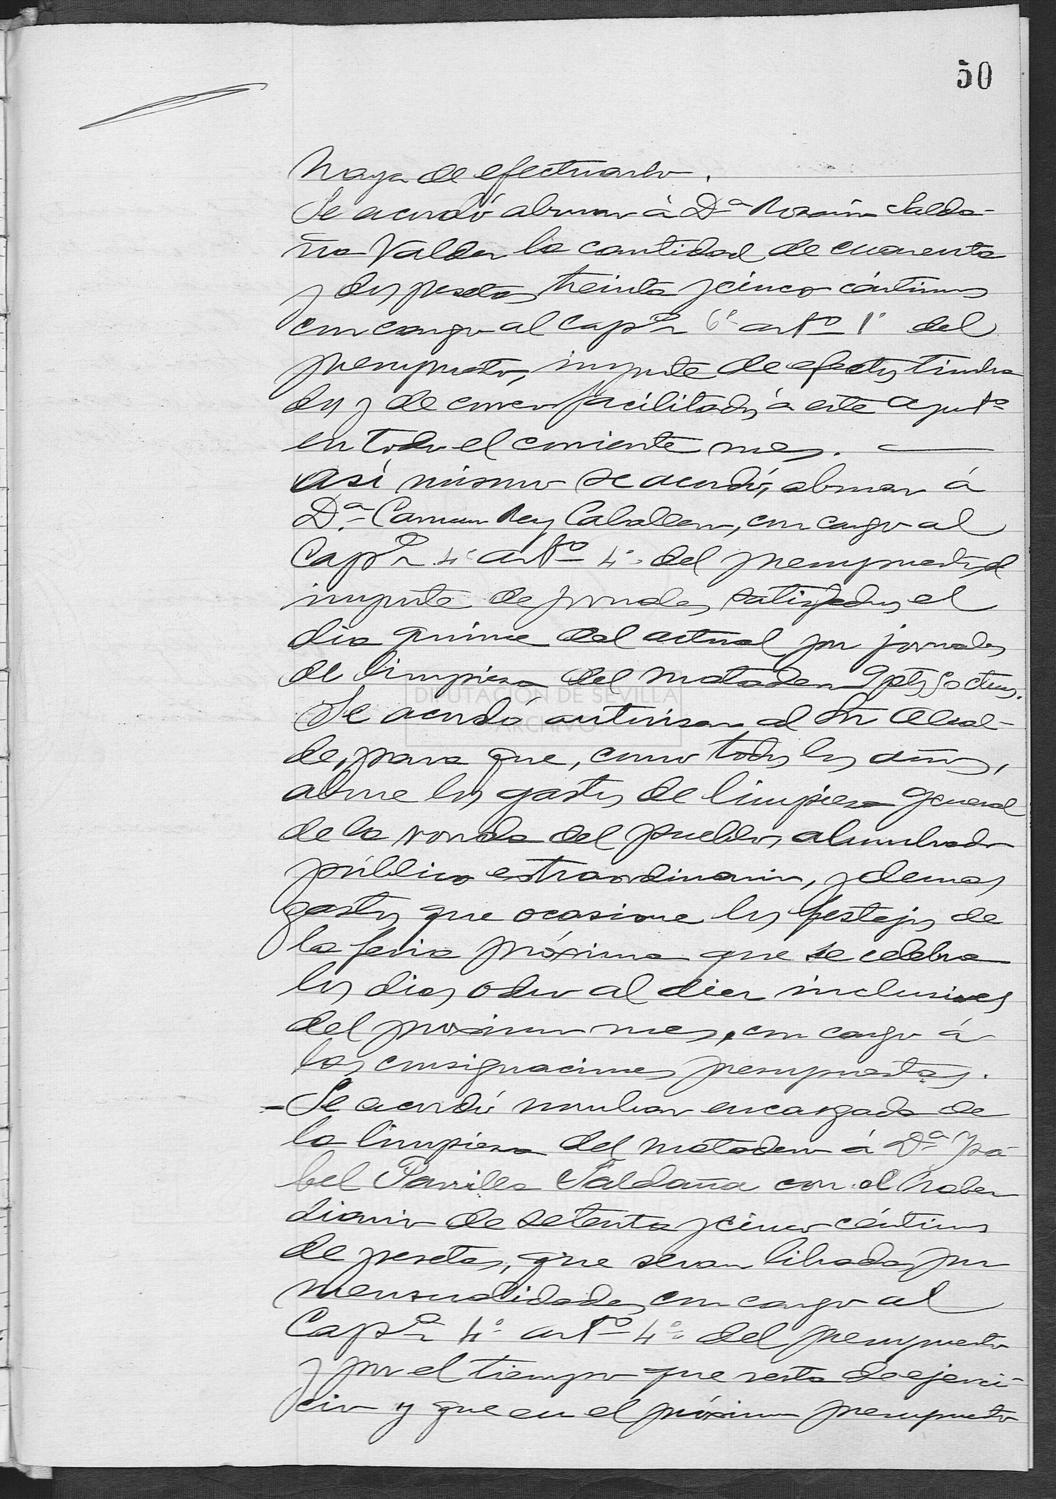 50
haya de efectuarlo.
Se acordó abonar á Dª Rosario Salda-
ña Valder la cantidad de cuarenta
y dos pesetas treinta y cinco céntimos
con cargo al capº 6º artº 1º del
presupuesto, importe de efectos timbra
dos y de correo facilitados á este ayuntº
en todo el corriente mes.
Así mismo se acordó, abonar á
Dª Carmen Rey Caballero, con cargo al
Capº 4º artº 4º del presupuesto, el
importe de jornales, satisfechos el
dia quince del actual por jornales
de limpieza del matadero 9 pts
DIPUTACIÓN DE SEVILLA
ARCHIVO
Se acordó autorizar al Sr Alcal-
de, para que, como todos los años,
abone los gastos de limpieza general
de la ronda del pueblo, alumbrado
público extraordinario, y demas
gastos que ocasione los festejos de
la feria próxima que se celebra
los dias ocho al diez inclusives
del proximo mes, con cargo á
las consignaciones presupuestas.
-Se acordó nombrar encargada de
la limpieza del matadero á Dª Isa-
bel Parrilla Saldaña con el haber
diario de setenta y cinco céntimos
de pesetas, que seran librados por
mensualidades, con cargo al
Capº 4º artº 4º del presupuesto
y por el tiempo que resta de ejerci-
cio y que en el próximo presupuesto